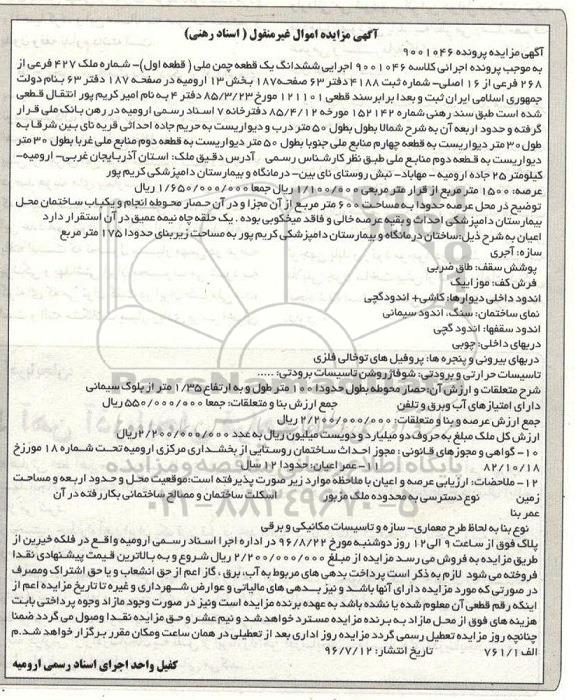 آگهی مزایده اموال غیرمنقول ( اسناد رهنی)
آگهی مزایده پرونده ۹۰۰۱۰۴۶
به موجب پرونده اجرائی کلاسه ۹۰۰۱۰۴۶ اجرایی ششدانگ یک قطعه چمن ملی ( قطعه اول)- شماره ملک ۴۲۷ فرعی از
۲۶۸ فرعی از ۱۶ اصلی- شماره ثبت ۴۱۸۸ دفتر ۶۳ صفحه۱۸۷ بخش ۱۳ ارومیه در صفحه ۱۸۷ دفتر ۶۳ بنام دولت
جمهوری اسلامی ایران ثبت و بعدا برابرسند قطعی ۱۲۱۱۰۱ مورخ ۸۵/۳/۲۳ دفتر ۴ به نام امیر کریم پور انتقال قطعی
شده است طبق سند رهنی شماره ۱۵۲۱۴۲ مورخه ۸۵/۴/۱۲ دفترخانه ۷ اسناد رسمی ارومیه در رهن بانک ملی قرار
گرفته و حدود اربعه آن به شرح شمالا بطول بطول ۵۰ متر درب و دیواریست به حریم جاده احداثی قریه نای بین شرقا به
طول ۳۰ متر دیواریست به قطعه چهارم منابع ملی جنوبا بطول ۵۰ متر دیواریست به قطعه دوم منابع ملی غربا بطول ۳۰ متر
دیواریست به قطعه دوم منابع ملی طبق نظر کارشناس رسمی آدرس دقیق ملک: استان آذربایجان غربی- ارومیه-
کیلومتر ۲۵ جاده ارومیه - مهاباد- نبش روستای نای بین- درمانگاه و بیمارستان دامپزشکی کریم پور
عرصه: ۱۵۰۰ متر مربع از قرار متر مربعی ۱/۱۰۰/۰۰۰ ریال جمعا ۱/۶۵۰/۰۰۰/۰۰۰ ریال
توضیح در محل عرصه حدودا به مساحت ۶۰۰ متر مربع از آن مجزا و در آن حصار محوطه انجام و یکباب ساختمان محل
بیمارستان دامپزشکی احداث و بقیه عرصه خالی و فاقد میخکوبی بوده . یک حلقه چاه نیمه عمیق در آن استقرار دارد
اعیان به شرح ذیل:ساختان درمانگاه و بیمارستان دامپزشکی کریم پور به مساحت زیربنای حدودا ۱۷۵ متر مربع
سازه: آجری
پوشش سقف: طاق ضربی
فرش کف: موزاییک
اندود داخلی دیوارها: کاشی+ اندودگچی
نمای ساختمان: سنگ، اندود سیمانی
اندود سقفها: اندود گچی
دربهای داخلی: چوبی
دربهای بیرونی و پنجره ها: پروفیل های توخالی فلزی
تاسیسات حرارتی و برودتی: شوفاژ روشن تاسیسات برودتی: .....
شرح متعلقات و ارزش آن: حصار محوطه بطول حدودا ۱۰۰ متر طول و به ارتفاع ۱/۳۵ متر از بلوک سیمانی
دارای امتیازهای آب وبرق و تلفن جمع ارزش بنا و متعلقات: جمعا ۵۵۰/۰۰۰/۰۰۰ ریال
جمع ارزش عرصه و بنا و متعلقات : ۲/۲۰۰/۰۰۰/۰۰۰ ریال
ارزش کل ملک مبلغ به حروف دو میلیارد و دویست میلیون ریال به عدد ۲/۲۰۰/۰۰۰/۰۰۰ریال
۱۰- گواهی و مجوزهای قانونی : مجوز احداث ساختمان روستایی از بخشداری مرکزی ارومیه تحت شماره ۱۸ مورزخ
۸۲/۱۰/۱۸ ۱۱-عمر اعیان: حدودا ۱۲ سال
۱۲- ملاحضات: ارزیابی عرصه و اعیان با ملاحظه موارد زیر صورت پذیرفته است:موقعیت محل و حدود اربعه و مساحت
زمین نوع دسترسی به محدوده ملک مزبور اسکلت ساختمان و مصالح ساختمانی بکاررفته در آن
عمر بنا
نوع بنا به لحاظ طرح معماری- سازه و تاسیسات مکانیکی و برقی
پلاک فوق از ساعت ۹ الی۱۲ روز دوشنبه مورخ ۹۶/۸/۲۲ در اداره اجرا اسناد رسمی ارومیه واقع در فلکه خیرین از
طریق مزایده به فروش می رسد مزایده از مبلغ ۲/۲۰۰/۰۰۰/۰۰۰ ریال شروع و به بالاترین قیمت پیشنهادی نقدا
فروخته می شود لازم به ذکر است پرداخت بدهی های مربوط به آب، برق ، گاز اعم از حق انشعاب و یا حق اشتراک ومصرف
در صورتی که مورد مزایده دارای آنها باشد و نیز بدهی های مالیاتی و عوارض شهرداری و غیره تا تاریخ مزایده اعم از
اینکه رقم قطعی آن معلوم شده یا نشده باشد به عهده برنده مزایده است ونیز در صورت وجود مازاد وجوه پرداختی بابت
هزینه های فوق از محل مازاد به برنده مزایده مسترد خواهدشد و نیم عشر و حق مزایده نقدا وصول می گردد ضمنا
چنانچه روز مزایده تعطیل رسمی گردد مزایده روز اداری بعد از تعطیلی در همان ساعت ومکان مقرر برگزار خواهد شد.م
الف ۷۶۱/۱ تاریخ انتشار: ۹۶/۷/۱۲
کفیل واحد اجرای اسناد رسمی ارومیه